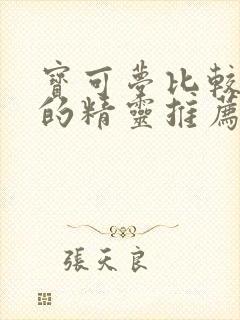 寶可夢比較
的精靈推薦
張天良